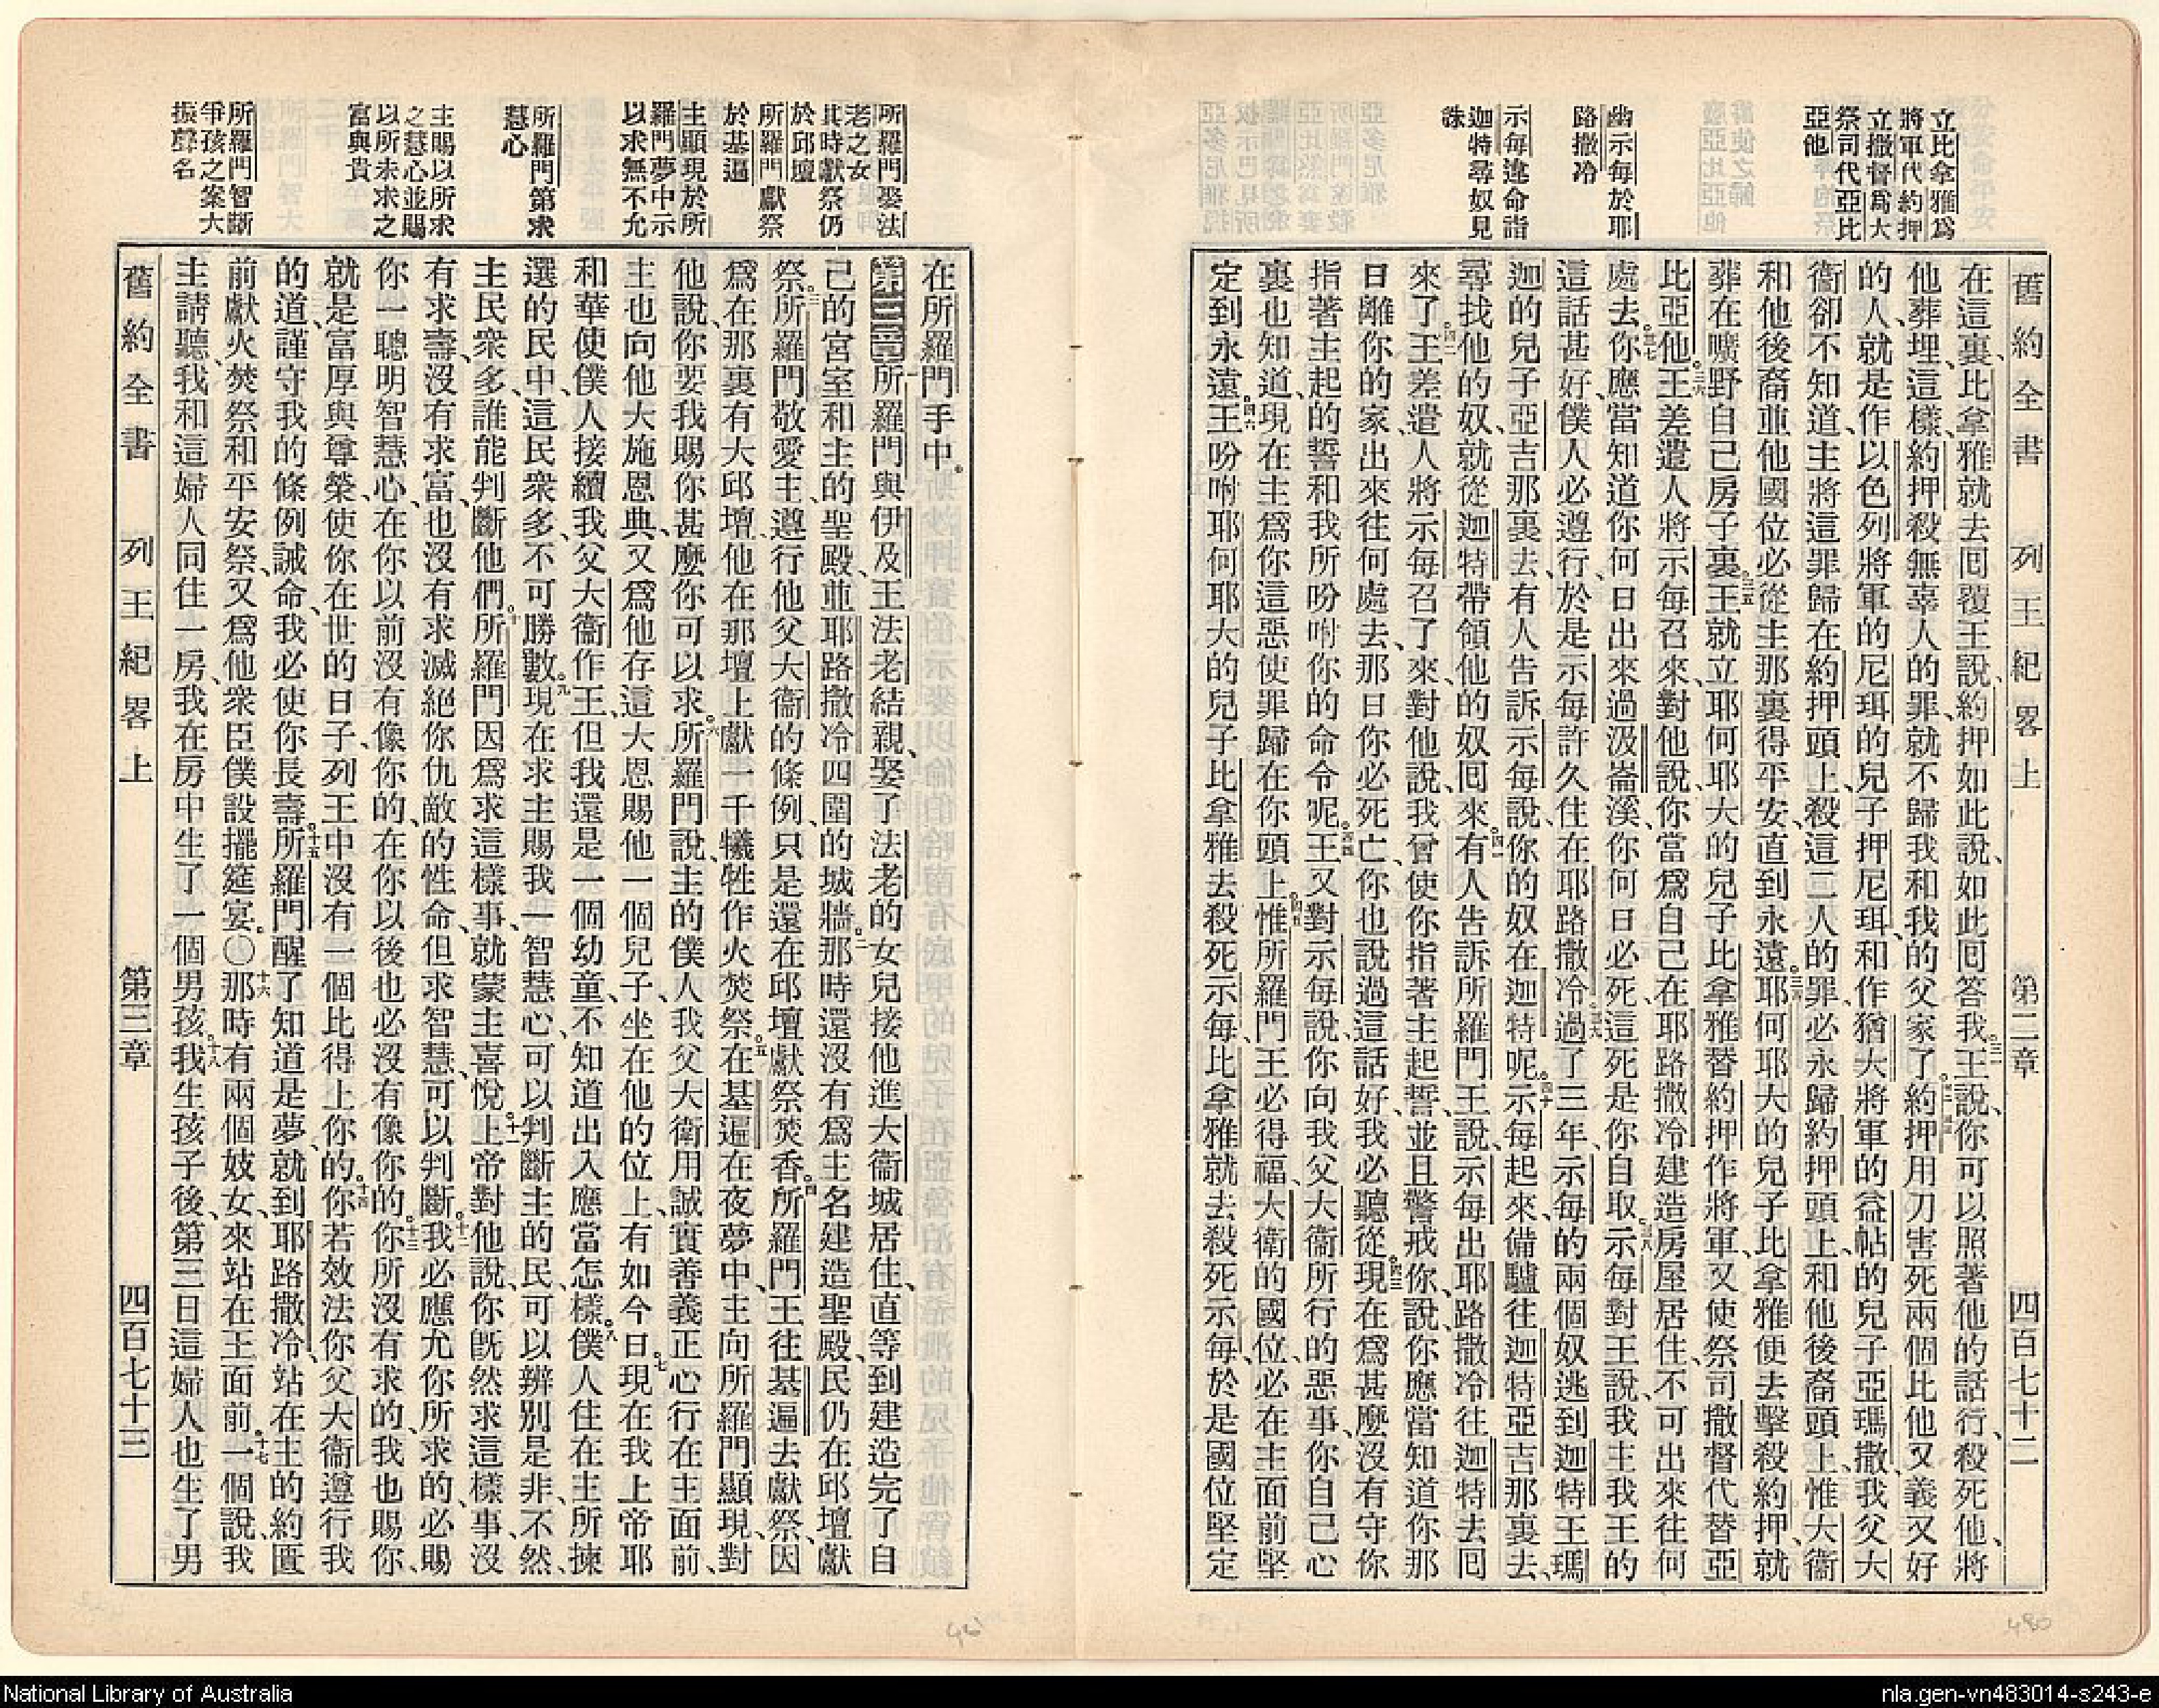 舊約全書 列王紀畧上 第二章 四百七十二
立比拿雅爲
將軍代約押
立撒督爲大
祭司代亞比
亞他
幽示每於耶
路撒冷
示每違命詣
迦特尋奴見
誅
在這裏比拿雅就去囘覆王說約押如此說如此囘答我王說你可以照著他的話行殺死他將
他葬埋這樣約押殺無辜人的罪就不歸我和我的父家了約押用刀害死兩個比他又義又好
的人就是作以色列將軍的尼珥的兒子押尼珥和作猶大將軍的益帖的兒子亞瑪撒我父大
衞卻不知道主將這罪歸在約押頭上殺這二人的罪必永歸約押頭上和他後裔頭上惟大衞
和他後裔並他國位必從主那裏得平安直到永遠耶何耶大的兒子比拿雅便去擊殺約押就
葬在曠野自己房子裏王就立耶何耶大的兒子比拿雅替約押作將軍又使祭司撒督代替亞
比亞他王差遣人將示每召來對他說你當爲自己在耶路撒冷建造房屋居住不可出來往何
處去你應當知道你何日出來過汲崙溪你何日必死這死是你自取示每對王說我主我王的
這話甚好僕人必遵行於是示每許久住在耶路撒冷過了三年示每的兩個奴逃到迦特王瑪
迦的兒子亞吉那裏去有人告訴示每說你的奴在迦特呢示每起來備驢往迦特亞吉那裏去
尋找他的奴就從迦特帶領他的奴囘來有人告訴所羅門王說示每出耶路撒冷往迦特去囘
來了王差遣人將示每召了來對他說我曾使你指著主起誓並且警戒你說你應當知道你那
日離你的家出來往何處去那日你必死亡你也說過這話好我必聽從現在爲甚麼沒有守你
指著主起的誓和我所吩咐你的命令呢王又對示每說你向我父大衞所行的惡事你自己心
裏也知道現在主爲你這惡使罪歸在你頭上惟所羅門王必得福大衞的國位必在主面前堅
定到永遠王吩咐耶何耶大的兒子比拿雅去殺死示每比拿雅就去殺死示每於是國位堅定
所羅門娶法
老之女
其時獻祭仍
於邱壇
所羅門獻祭
於基遍
主顯現於所
羅門夢中示
以求無不允
所羅門第求
慧心
主賜以所求
之慧心並賜
以所未求之
富與貴
所羅門智斷
爭孩之案大
振聲名
在所羅門手中
第三章所羅門與伊及王法老結親娶了法老的女兒接他進大衞城居住直等到建造完了自
己的宮室和主的聖殿並耶路撒冷四圍的城牆那時還沒有爲主名建造聖殿民仍在邱壇獻
祭所羅門敬愛主遵行他父大衞的條例只是還在邱壇獻祭焚香所羅門王往基遍去獻祭因
爲在那裏有大邱壇他在那壇上獻一千犧牲作火焚祭在基遍在夜夢中主向所羅門顯現對
他說你要我賜你甚麼你可以求所羅門說主的僕人我父大衞用誠實善義正心行在主面前
主也向他大施恩典又爲他存這大恩賜他一個兒子坐在他的位上有如今日現在我上帝耶
和華使僕人接續我父大衞作王但我還是一個幼童不知道出入應當怎樣僕人住在主所揀
選的民中這民衆多不可勝數現在求主賜我一智慧心可以判斷主的民可以辨別是非不然
主民衆多誰能判斷他們所羅門因爲求這樣事就蒙主喜悅上帝對他說你旣然求這樣事沒
有求壽沒有求富也沒有求滅絕你仇敵的性命但求智慧可以判斷我必應允你所求的必賜
你一聰明智慧心在你以前沒有像你的在你以後也必沒有像你的你所沒有求的我也賜你
就是富厚與尊榮使你在世的日子列王中沒有一個比得上你的你若效法你父大衞遵行我
的道謹守我的條例誡命我必使你長壽所羅門醒了知道是夢就到耶路撒冷站在主的約匱
前獻火焚祭和平安祭又爲他衆臣僕設擺筵宴〇那時有兩個妓女來站在王面前一個說我
主請聽我和這婦人同住一房我在房中生了一個男孩我生孩子後第三日這婦人也生了男
舊約全書 列王紀畧上 第三章 四百七十三
480
National Library of Australia
nla.gen-vn483014-s243-e